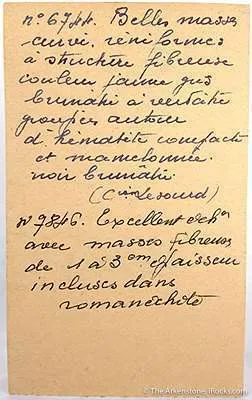 n° 6744. Belles masses
réniformes
à structure fibreuse
couleur jaune gris
brunâtre à verdâtre
groupées autour
d'hématite compacte
et mamelonnée.
noir brunâtre.
(C Lesourd)
n° 9846. Excellent éch
avec masses fibreuses
de 1 à 3 cm d'épaisseur
incluses dans
romanéchite
© The Arkenstone, iRocks.com